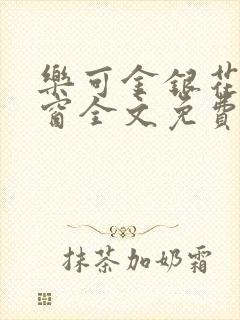 樂可金銀花
窗全文免費
抹茶加奶霜